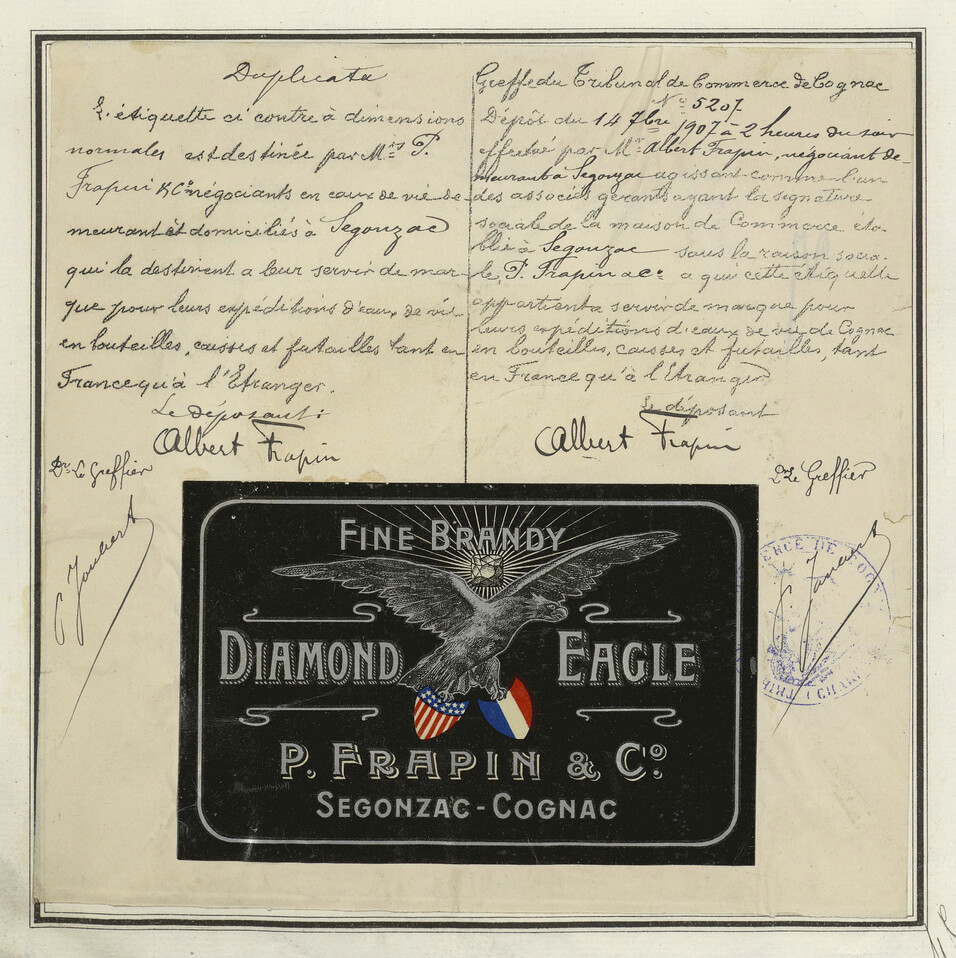 Duplicata
L'étiquette ci contre à dimensions
normales est destinée par Mrs P.
Frapin & Co négociants en eaux de vie de-
meurant et domiciliés à Segonzac
qui la destinent a leur servir de mar-
que pour leurs expéditions d'eaux de vie
en bouteilles, caisses et futailles tant en
France qu'à l'Etranger.
Le déposant:
Albert Frapin
Le Greffier
Greffe du Tribunal de Commerce de Cognac
No 5207
Dépôt du 14 7bre 1907 à 2 heures du soir
effectué par Mr Albert Frapin, négociant de-
meurant à Segonzac agissant comme l'un
des associés gérants ayant la signature
sociale de la maison de Commerce éta-
blie à Segonzac sous la raison socia-
le, P. Frapin & Co a qui cette étiquette
appartient a servir de marque pour
leurs expéditions d'eaux de vie de Cognac
en bouteilles, caisses et futailles, tant
en France qu'à l'Etranger
Le déposant
Albert Frapin
Le Greffier
FINE BRANDY
DIAMOND EAGLE
P. FRAPIN & Co
SEGONZAC - COGNAC